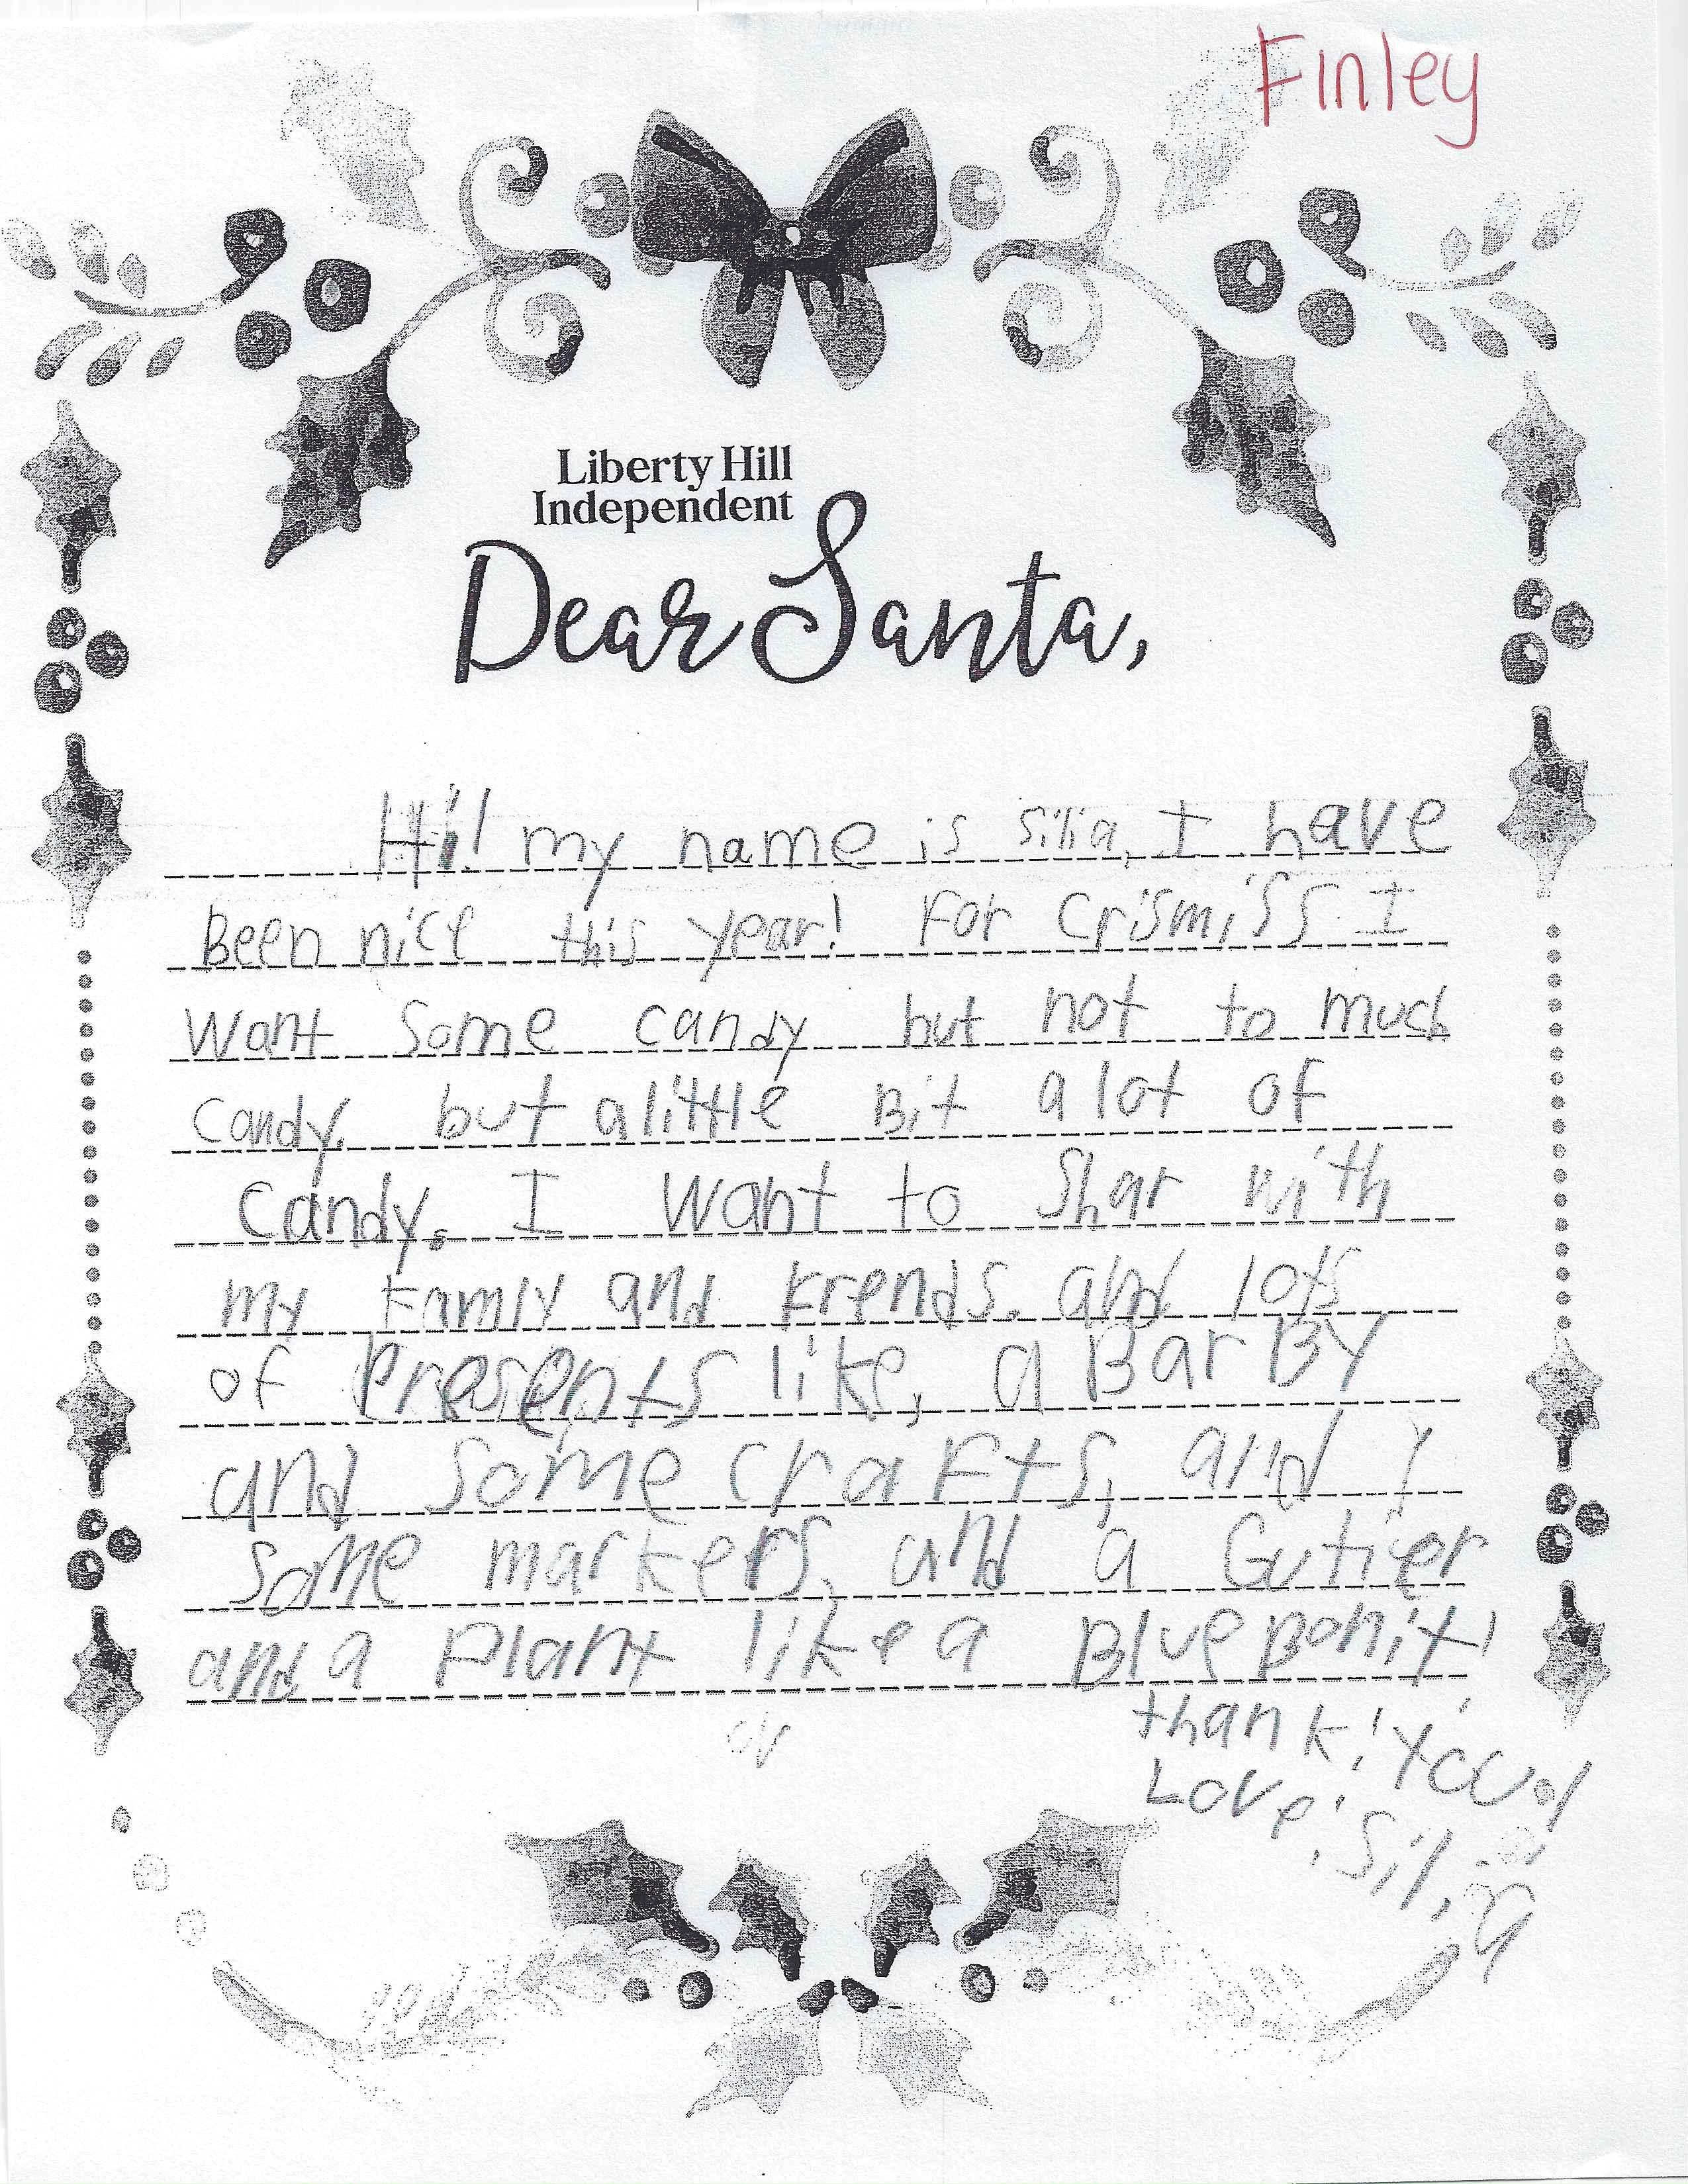 Finley
Liberty Hill
Independent
Dear Santa,
Hi! my name is Silia, I have
Been nice this year! For Crismiss I
want some candy but not to much
candy, but alittle Bit a lot of
candy. I want to Shar with
my Famly and Frends. and lots
of Presents like, a BarBY
and some crafts, and
some markers, and a Gutier
and a Plant like a Blue Bonit!
thank! You!
Love! Silia